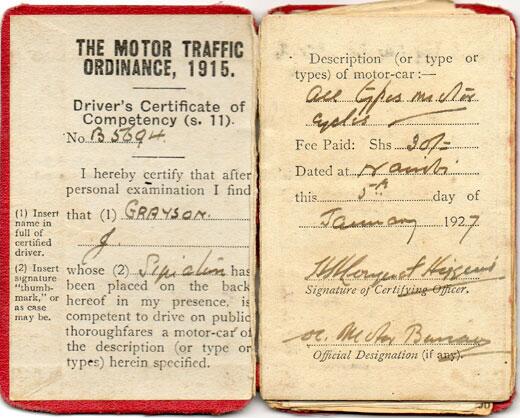 THE MOTOR TRAFFIC
ORDINANCE, 1915.
Driver's Certificate of
Competency (s. 11).
No. B 5694.
I hereby certify that after
personal examination I find
that (1) GRAYSON.
J.
(1) Insert
name in
full of
certified
driver.
(2) Insert
signature
"thumb-
mark," or
as case
may be.
whose (2) Signature has
been placed on the back
hereof in my presence, is
competent to drive on public
thoroughfares a motor-car of
the description (or type or
types) herein specified.
Description (or type or
types) of motor-car:—
All types motor
cycles
Fee Paid: Shs 20/-
Dated at Nairobi
this 5th day of
January 1927
Higgens
Signature of Certifying Officer.
Motor Bureau
Official Designation (if any).